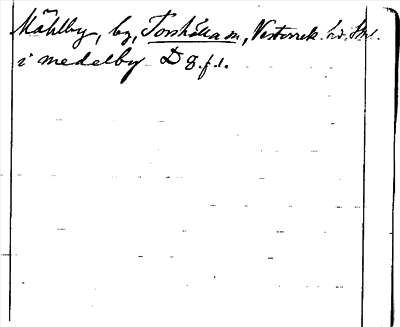 Mählby, by, Torshälla sn, Västerrek. hd. Srml.
i medelby D 8. f. 1.